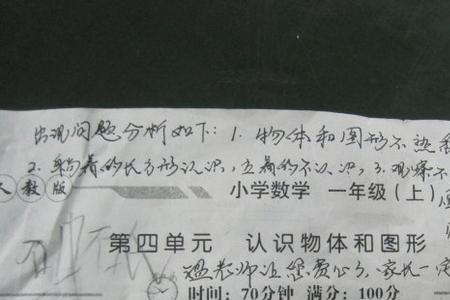 出现问题分析如下：1. 物体和图形不熟
2. 躺着的长方形认识，立着的不认识，3. 观察不
人教版
小学数学 一年级（上）
第四单元 认识物体和图形
温老师注：您费心了，家长一定
时间：70分钟 满分：100分